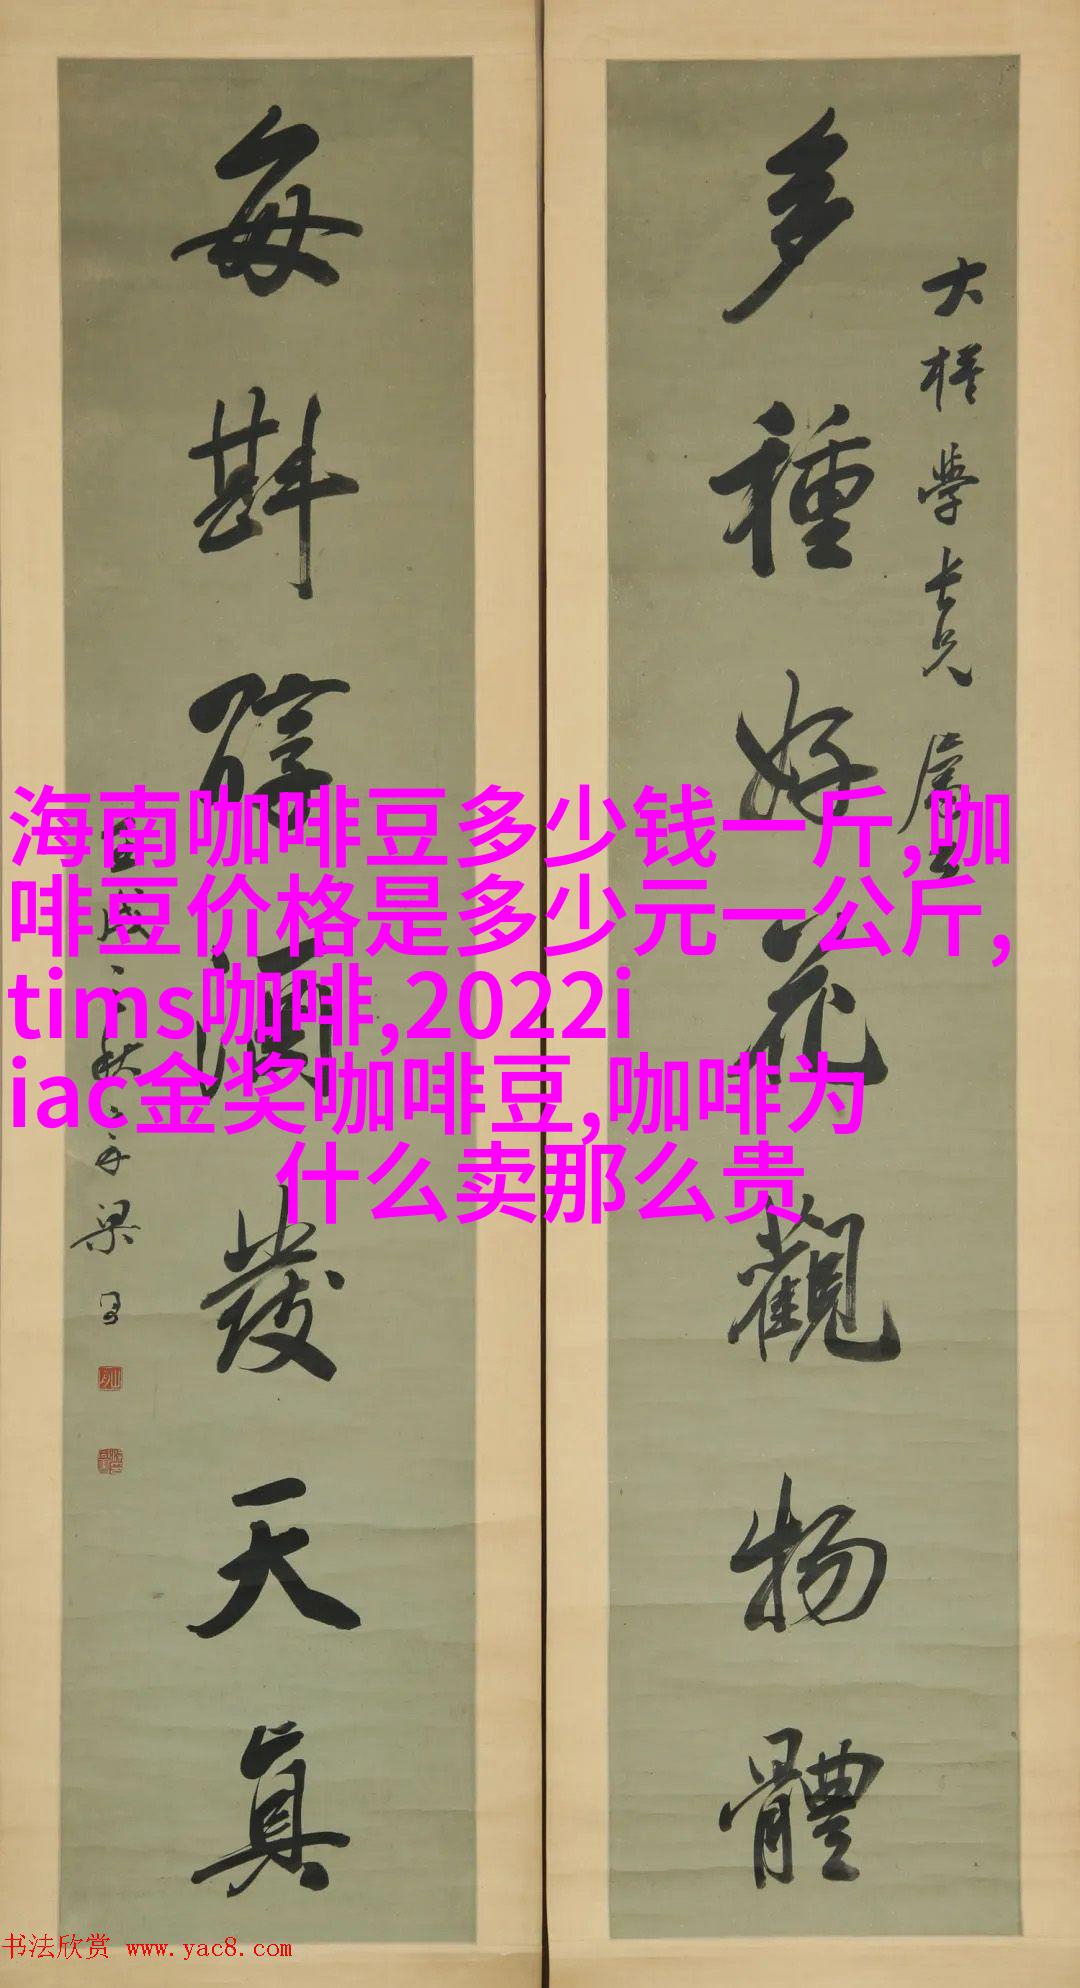 多種好花觀物體
大樁學長兄屬
每斟醇酒發天真
梁
海南咖啡豆多少钱一斤,咖
啡豆价格是多少元一公斤,
tims咖啡,2022i
iac金奖咖啡豆,咖啡为
什么卖那么贵
书法欣赏 www.yac8.com